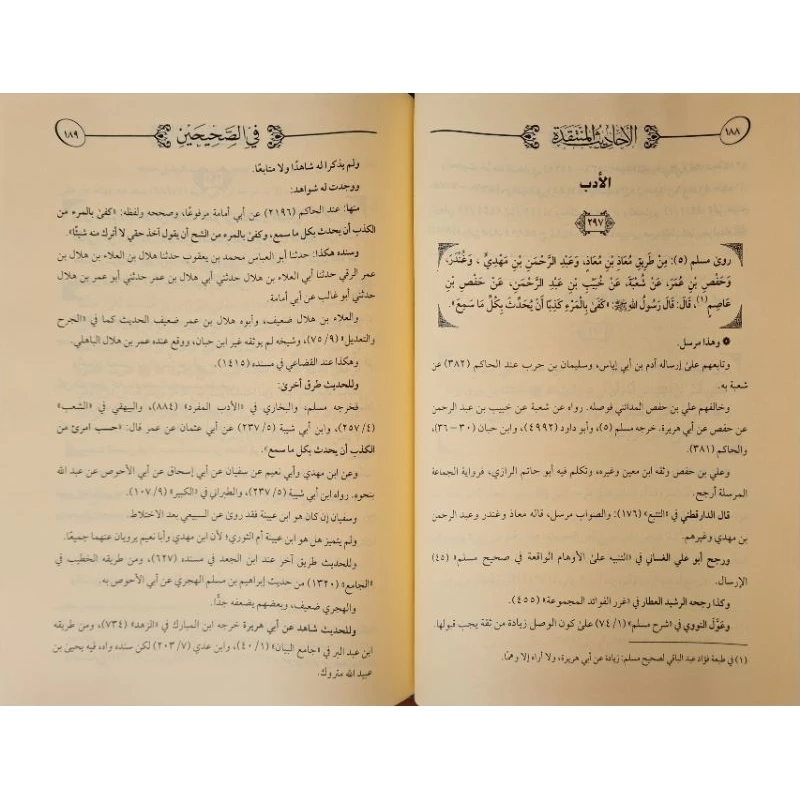 ١٨٨
الأحاديث المنتقدة
الأدب
٢٩٧
روى مسلم (٥): مِنْ طَرِيقِ مُعَاذِ بْنِ مُعَاذٍ، وَعَبْدِ الرَّحْمَنِ بْنِ مَهْدِيٍّ، وَغُنْدَرَ،
وَحَفْصِ بْنِ عُمَرَ، عَنْ شُعْبَةَ، عَنْ خُبَيْبِ بْنِ عَبْدِ الرَّحْمَنِ، عَنْ حَفْصِ بْنِ
عَاصِمٍ(١)، قَالَ: قَالَ رَسُولُ اللهِ ﷺ: «كَفَى بِالْمَرْءِ كَذِبًا أَنْ يُحَدِّثَ بِكُلِّ مَا سَمِعَ».
وهذا مرسل.
وتابعهم على إرساله آدم بن أبي إياس، وسليمان بن حرب عند الحاكم (٣٨٢) عن
شعبة به.
وخالفهم علي بن حفص المدائني فوصله. رواه عن شعبة عن خبيب بن عبد الرحمن
عن حفص عن أبي هريرة. خرجه مسلم (٥)، وأبو داود (٤٩٩٢)، وابن حبان (٣٠-٣٦)،
والحاكم (٣٨١).
وعلي بن حفص وثقه ابن معين وغيره، وتكلم فيه أبو حاتم الرازي، فرواية الجماعة
المرسلة أرجح.
قال الدارقطني في «التتبع» (١٧٦): والصواب مرسل، قاله معاذ وغندر وعبد الرحمن
بن مهدي وغيرهم.
ورجح أبو علي الغساني في «التنبيه على الأوهام الواقعة في صحيح مسلم» (٤٥)
الإرسال.
وكذا رجحه الرشيد العطار في «غرر الفوائد المجموعة» (٤٥٥).
وعَوَّل النووي في «شرح مسلم» (١/ ٧٤) على كون الوصل زيادة من ثقة يجب قبولها.
(١) في طبعة فؤاد عبد الباقي لصحيح مسلم: زيادة عن أبي هريرة، ولا أراه إلا وهمًا.
في الصحيحين
١٨٩
ولم يذكرا له شاهدًا ولا متابعًا.
ووجدت له شواهد:
منها: عند الحاكم (٢١٩٦) عن أبي أمامة مرفوعًا، وصححه ولفظه: «كفى بالمرء من
الكذب أن يحدث بكل ما سمع، وكفى بالمرء من الشح أن يقول آخذ حقي لا أترك منه شيئًا».
وسنده هكذا: حدثنا أبو العباس محمد بن يعقوب حدثنا هلال بن العلاء بن هلال بن
عمر الرقي حدثنا أبي العلاء بن هلال حدثني أبي هلال بن عمر حدثني أبي عمر بن هلال
حدثني أبو غالب عن أبي أمامة.
والعلاء بن هلال ضعيف، وأبوه هلال بن عمر ضعيف الحديث كما في «الجرح
والتعديل» (٩/ ٧٥)، وشيخه لم يوثقه غير ابن حبان، ووقع عنده عمر بن هلال الباهلي.
وهكذا عند القضاعي في مسنده (١٤١٥).
وللحديث طرق أخرى:
فخرجه مسلم، والبخاري في «الأدب المفرد» (٨٨٤)، والبيهقي في «الشعب»
(٤/ ٢٥٧)، وابن أبي شيبة (٥/ ٢٣٧) عن أبي عثمان عن عمر قال: «حسب امرئ من
الكذب أن يحدث بكل ما سمع».
وعن ابن مهدي وأبي نعيم عن سفيان عن أبي إسحاق عن أبي الأحوص عن عبد الله
بنحوه. رواه ابن أبي شيبة (٥/ ٢٣٧)، والطبراني في «الكبير» (٩/ ١٠٧).
وسفيان إن كان هو ابن عيينة فقد روى عن السبيعي بعد الاختلاط.
ولم يتميز هل هو ابن عيينة أم الثوري؛ لأن ابن مهدي وأبا نعيم يرويان عنهما جميعًا.
وللحديث طريق آخر عند ابن الجعد في مسنده (٦٢٧)، ومن طريقه الخطيب في
«الجامع» (١٣٢٠) من حديث إبراهيم بن مسلم الهجري عن أبي الأحوص به.
والهجري ضعيف، وبعضهم يضعفه جدًّا.
وللحديث شاهد عن أبي هريرة خرجه ابن المبارك في «الزهد» (٧٣٤)، ومن طريقه
ابن عبد البر في «جامع البيان» (١/ ٤٠)، وابن عدي (٧/ ٢٠٣) لكن سنده واه، فيه يحيى بن
عبيد الله متروك.